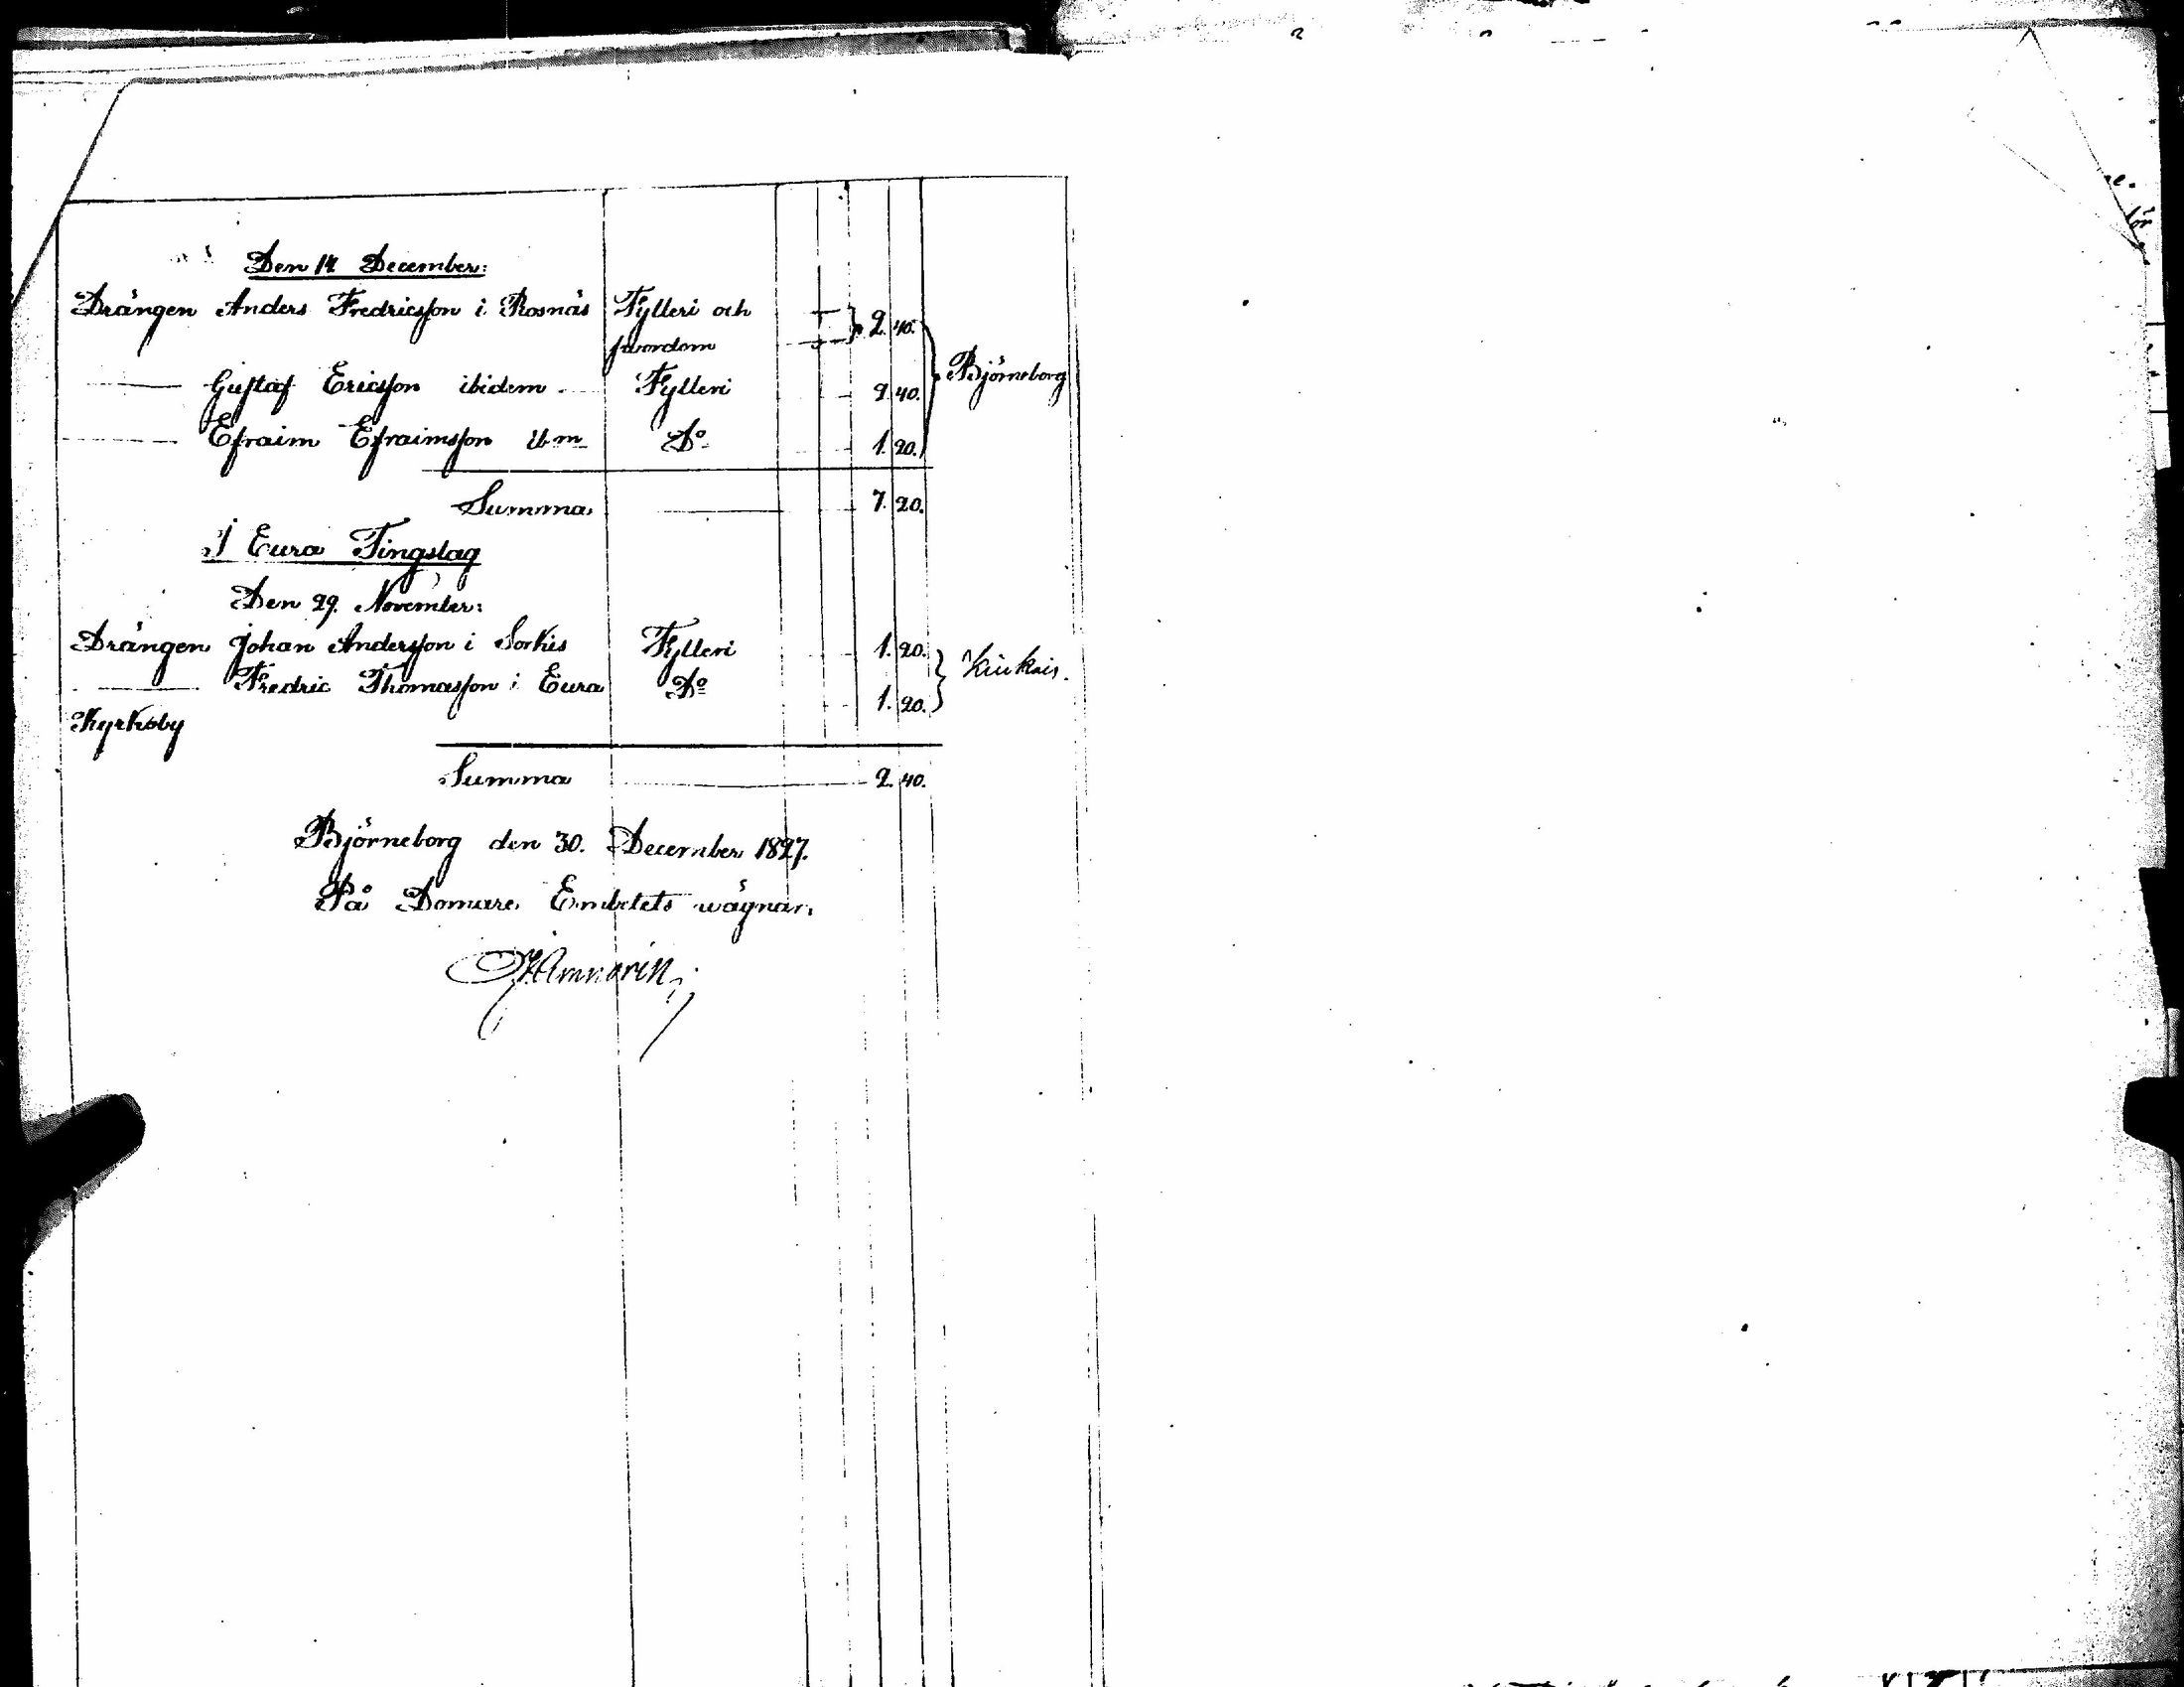 Den 14 December:
Drängen Anders Fredricsson i Rosnäs Fylleri och 2. 40.
svordom
Gustaf Ericsson ibidem Fylleri 2 40. Björneborg
Efraim Efraimsson ib:m D:o 1. 20.
Summa 7. 20.
I Eura Tingslag
Den 29. November:
Drängen Johan Andersson i Sorkis Fylleri 1. 20. Kiukais.
Fredric Thomasson i Eura D:o 1. 20.
Kyrkoby
Summa 2. 40.
Björneborg den 30. December 1827.
På Domare Embetets wägnar.